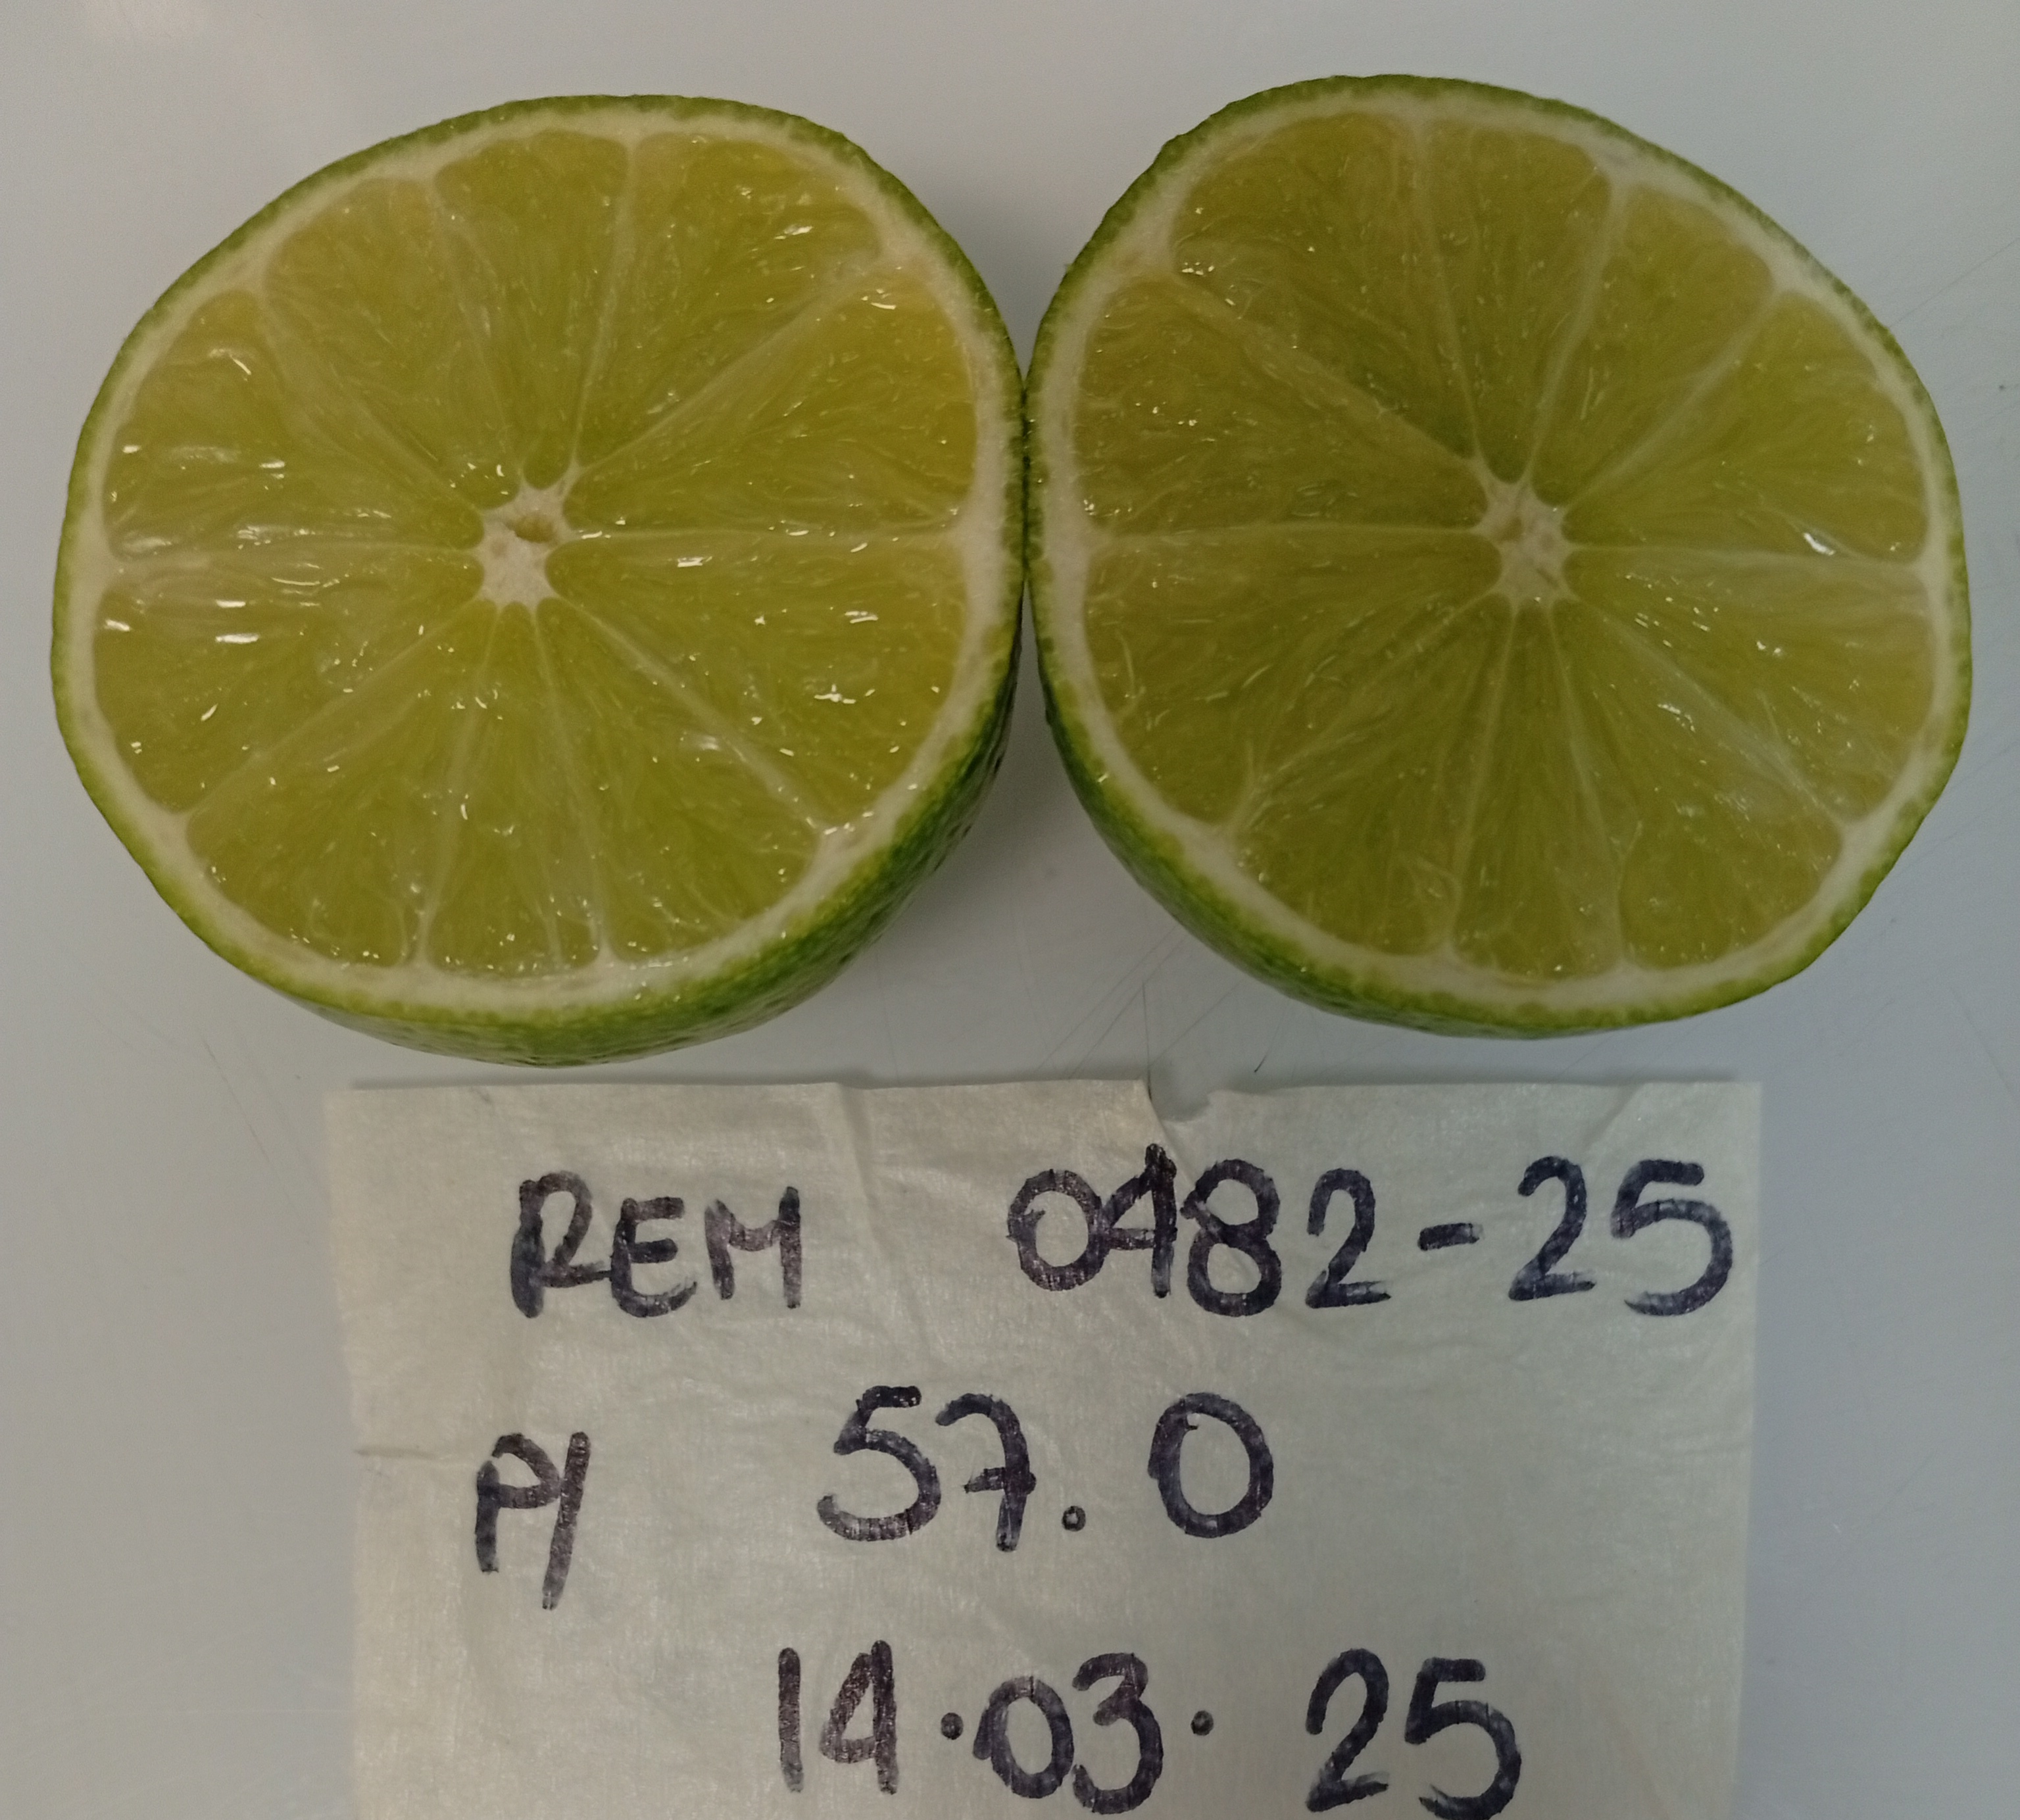 REM 0482-25
P/ 57.0
14.03.25